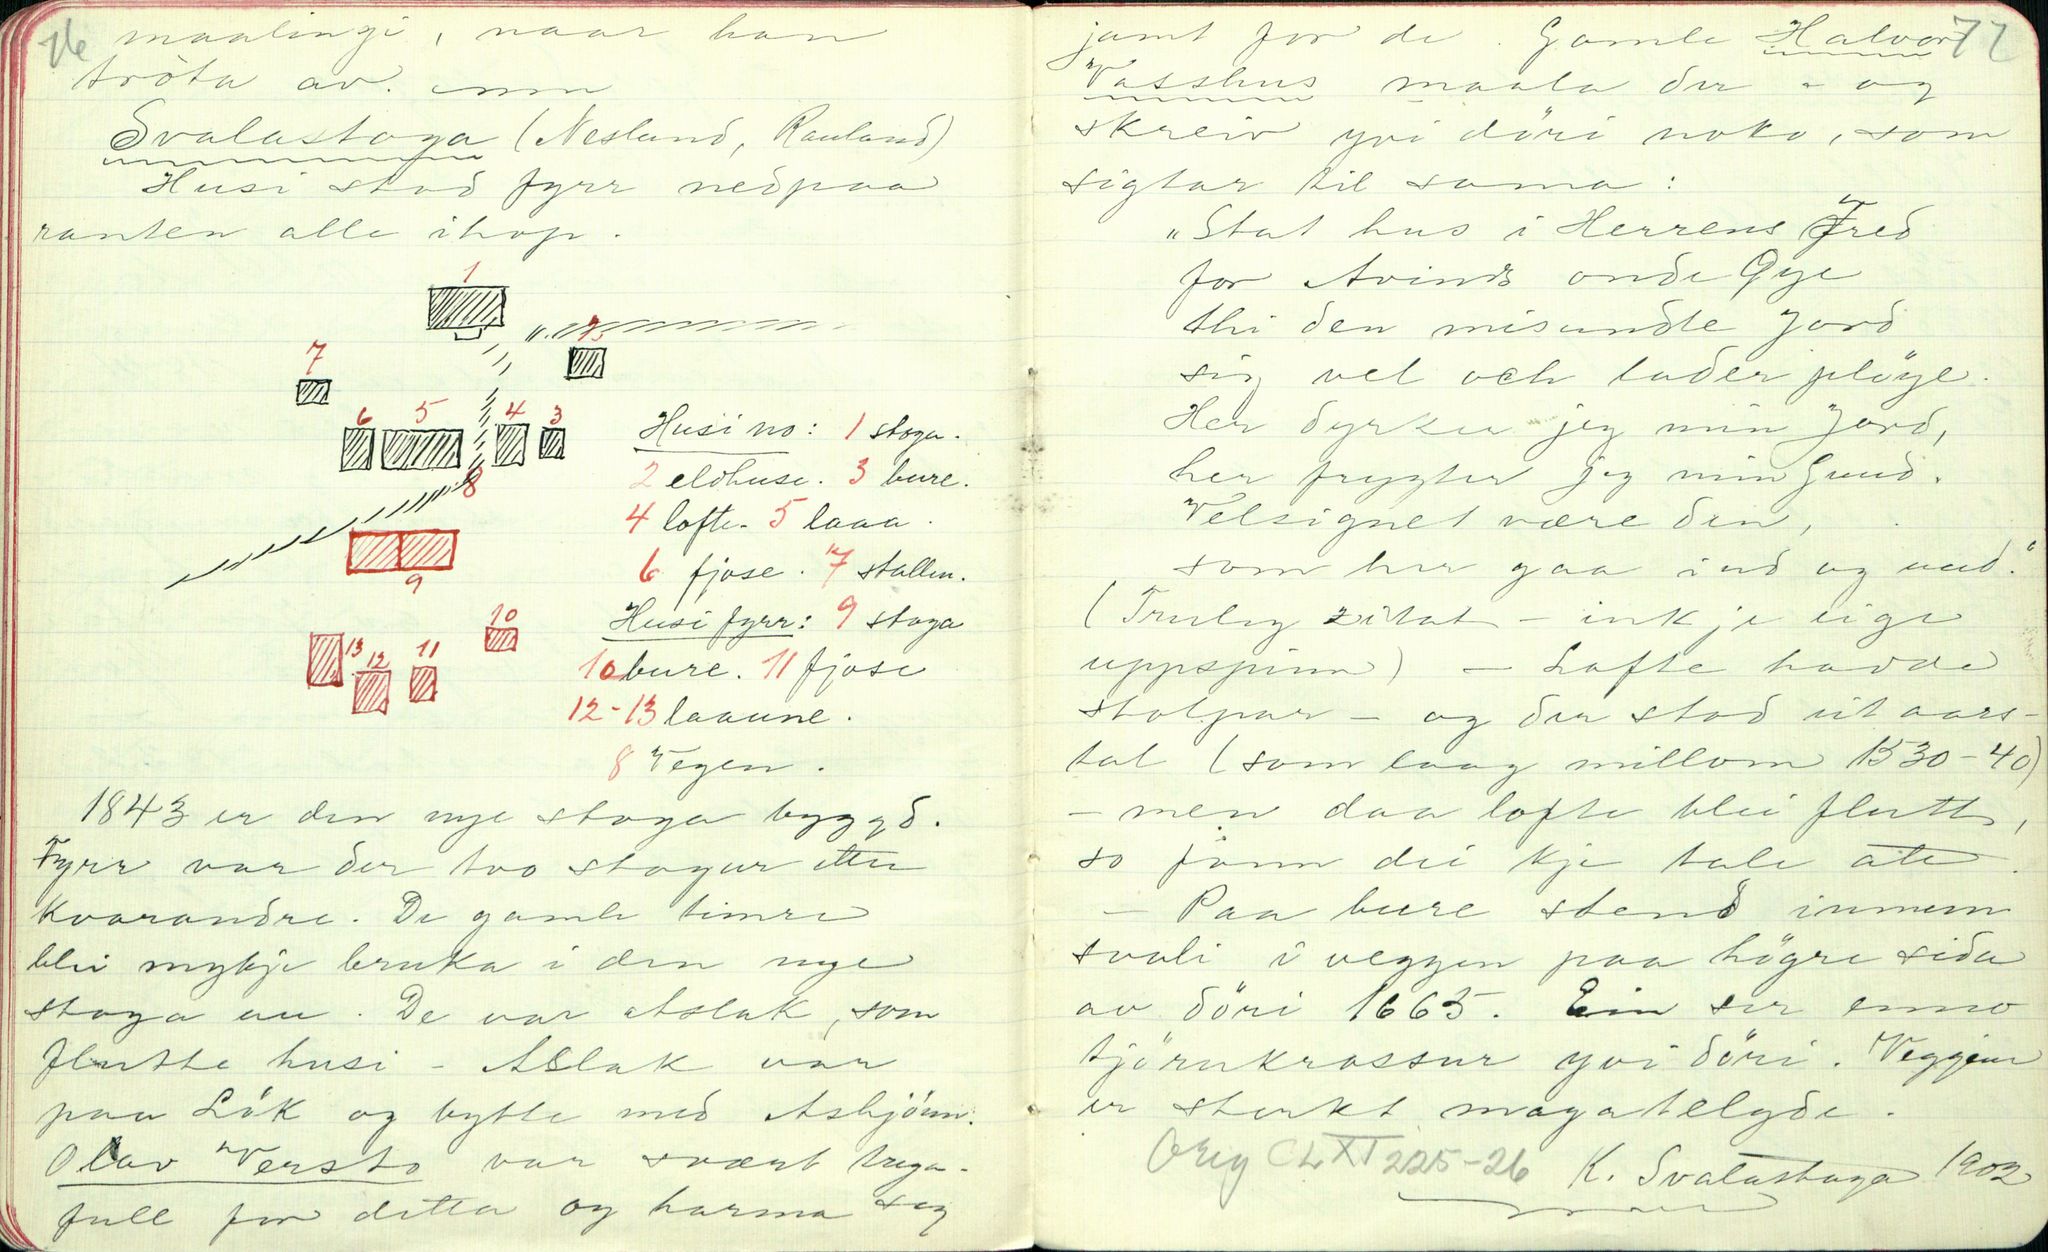 76
maalingi, naar han
tröta av.
Svalastoga (Nesland, Rauland)
Husi stod fyrr nedpaa
ranten alle ihop.
1
7
6 5 4 3
8
9
10
13 12 11
Husi no: 1 stoga.
2 eldhuse. 3 bure.
4 lofte. 5 laaa.
6 fjose. 7 stallen.
Husi fyrr: 9 stoga
10 bure. 11 fjose
12-13 laaune.
8 Vegen.
1843 er den nye stoga bygd.
Fyrr var der two stogur etter
kvarandre. De gamle timre
blei mykje bruka i den nye
stoga au. De var Aslak, som
flutte husi - Aslak var
paa Lök og bytte med Asbjönn.
Olav Versto var svært trega-
full for detta og harma seg
77
jamt for de. Gamle Halvor
Vasshus maala der - og
skreiv yvi döri noko, som
sigtar til sama:
"Stat hus i Herrens Fred
for Avinds onde Øye
thi den misundte Jord
sig vel och lader pløye.
Her dyrker jeg min Jord,
her frygter jeg min Gud.
Velsignet være den,
som her gaa ind og uud."
(Truleg zitat - inkje eige
uppspinn) - Lofte havde
stolpar - og der stod eit aars-
tal (som laag millom 1530-40)
- men daa lofte blei flutt,
so fönn dei kje tale ate.
- Paa bure stend innum
svali i veggen paa högre sida
av döri 1665. Ein ser enno
tjörukrossur yvi döri. Veggjene
er sterkt magatelgde.
Orig CL XI 225-26 K. Svalastoga 1902